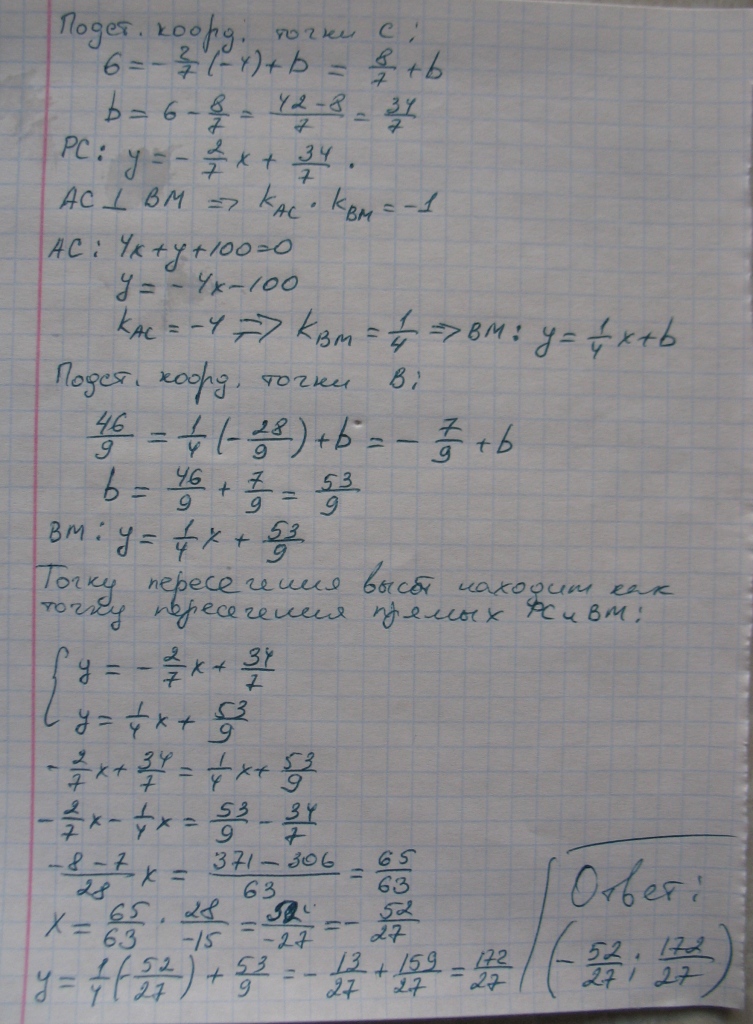 Подст. коорд. точки C:
6 = -2/7(-4)+b = 8/7 + b
b = 6 - 8/7 = (42-8)/7 = 34/7
PC: y = -2/7 x + 34/7.
AC ⊥ BM ⇒ k_AC · k_BM = -1
AC: 4x+y+100=0
y = -4x-100
k_AC = -4 ⇒ k_BM = 1/4 ⇒ BM: y = 1/4 x+b
Подст. коорд. точки B:
46/9 = 1/4(-28/9)+b = -7/9 + b
b = 46/9 + 7/9 = 53/9
BM: y = 1/4 x + 53/9
Точку пересечения высот находим как
точку пересечения прямых PC и BM:
{ y = -2/7 x + 34/7
y = 1/4 x + 53/9
-2/7 x + 34/7 = 1/4 x + 53/9
-2/7 x - 1/4 x = 53/9 - 34/7
(-8-7)/28 x = (371-306)/63 = 65/63
x = 65/63 · 28/-15 = 52/-27 = -52/27
y = 1/4(-52/27) + 53/9 = -13/27 + 159/27 = 172/27
Ответ:
(-52/27; 172/27)